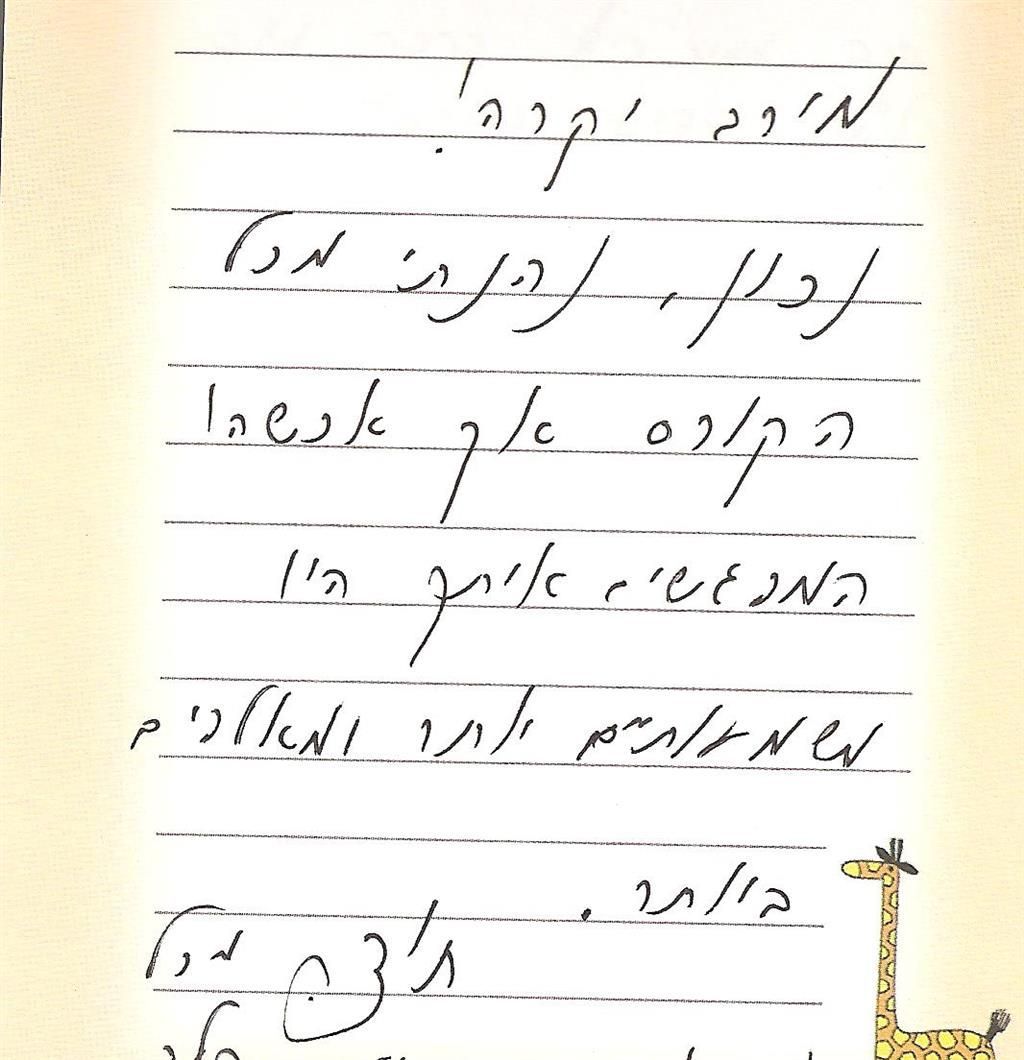 מירב יקרה!
נכון, נהנתי מכל
הקורס אך איכשהו
המפגשים איתך היו
משמעותיים יותר ומאלפים
ביותר.
תודה מכל